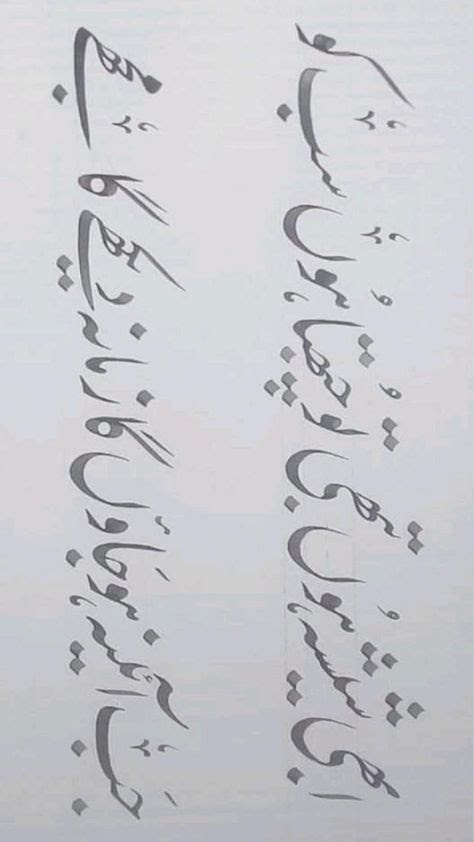 ابھی شیشہ ہُوں تبھی تو چُبھتا ہُوں سب کو
جَب آئینہ ہو جَاؤں گا زمانہ دیکھے گا مجھے